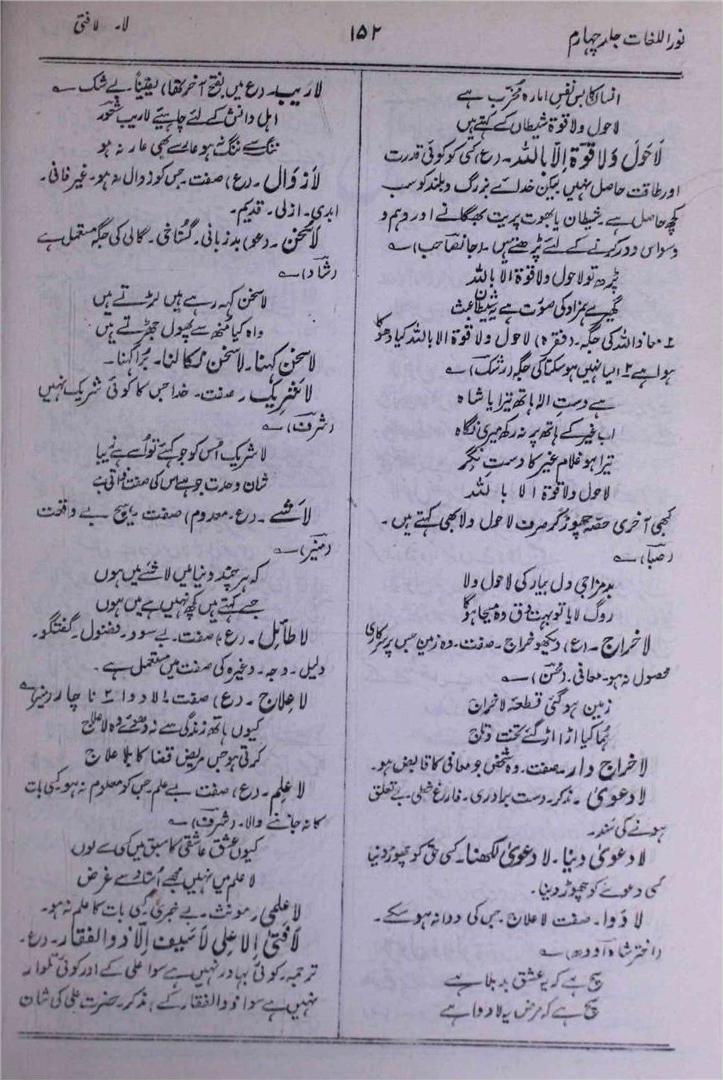 نور اللغات جلد چہارم
۱۵۲
لا۔ لا فتیٰ
انسان کا بس نفس امارہ مخرب ہے
لاحول ولا قوۃ شیطاں کے کہتے ہیں
لَاحَولَ وَلَا قوۃَ اِلّا بِاللہ۔ (ع) کسی کو کوئی قدرت
اور طاقت حاصل نہیں لیکن خدائے بزرگ و بلند کو سب
کچھ حاصل ہے۔ شیطان یا بھوت پریت بھگانے اور وہم و
وسواس دور کرنے کے لئے پڑھتے ہیں۔ (جانصاحب) ؎
پڑھ تو لاحول ولا قوۃ الا باللہ
گھیرے ہمزاد کی صورت ہے شیطان عبث
۱۔ معاذ اللہ کی جگہ۔ (فقرہ) لاحول ولا قوۃ الا باللہ کیا دھوکا
ہوا ہے ۲ ایسا نہیں ہو سکتا کی جگہ (رشک) ؎
ہے دستِ الٰہ ہاتھ تیرا یا شاہ
اب غیر کے ہاتھ پر نہ رکھ میری نگاہ
تیرا ہو غلام غیر کا دست نگر
لاحول ولا قوۃ الا باللہ
کبھی آخری حصہ چھوڑ کر صرف لاحول ولا بھی کہتے ہیں۔
(صبا) ؎
بدمزاجی دل بیمار کی لاحول ولا
روگ لایا تو بہت دق وہ مسیحا ہوگا
لا خراج۔ (ع) دیکھو خراج۔ صفت۔ وہ زمین جس پر سرکاری
محصول نہ ہو۔ معافی۔ (محسن) ؎
زمین ہو گئی قطعۂ لاخراج
ہما کیا اڑا اڑ گئے تخت و تاج
لا خراج دار۔ صفت۔ وہ شخص جو معافی کا قابض ہو۔
لا دعویٰ۔ مذکر۔ دست برداری۔ فارغ خطی۔ بے تعلق
ہونے کی سند۔
لا دعویٰ دینا۔ لا دعویٰ لکھنا۔ کسی حق کو چھوڑ دینا
کسی دعوے کو چھوڑ دینا۔
لا دَوا۔ صفت لا علاج۔ جس کی دوا نہ ہو سکے۔
(اختر شاہ اودھ) ؎
سچ ہے کہ یہ عشق بد بلا ہے
سچ ہے کہ مرض یہ لا دوا ہے
لا رَیب۔ (ع میں بفتح آخر تھا) یقیناً۔ بے شک ؎
اہل دانش کے لئے چاہیئے لاریب شعور
ننگ سے ننگ نہ ہو عار سے بھی عار نہ ہو
لا زَوال۔ (ع) صفت۔ جس کو زوال نہ ہو۔ غیر فانی۔
ابدی۔ ازلی۔ قدیم۔
لا سخن۔ (عو) بد زبانی۔ گستاخی۔ گالی کی جگہ مستعمل ہے
(شاد) ؎
لا سخن کہہ رہے ہیں لڑتے ہیں
واہ کیا منھ سے پھول جھڑتے ہیں
لا سخن کہنا۔ لا سخن نکالنا۔ برا کہنا۔
لا شریک۔ صفت۔ خدا جس کا کوئی شریک نہیں
(شرف) ؎
لا شریک اُس کو جو کہئے تو اُسے ہے زیبا
شان وحدت جو ہے اس کی صفت ذاتی ہے
لا شے۔ (ع۔ معدوم) صفت۔ ہیچ بے وقعت
(منیر) ؎
کہ ہر چند دنیا میں لا شے میں ہوں
جسے کہتے ہیں کچھ نہیں ہے میں ہوں
لا طائِل۔ (ع) صفت۔ بے سود۔ فضول۔ گفتگو۔
دلیل۔ وجہ۔ وغیرہ کی صفت میں مستعمل ہے۔
لا علاج۔ (ع) صفت۔ ۱ لادوا ۲ ناچار (منیر) ؎
کیوں ہاتھ زندگی سے نہ دھوئے وہ لا علاج
کرتی ہو جس مریض قضا کا بلا علاج
لا عِلم۔ (ع) صفت۔ بے علم۔ جس کو معلوم نہ ہو۔ کسی بات
کا نہ جاننے والا۔ (شرف) ؎
کیوں عشق عاشقی کا سبق میں کسی سے لوں
لا علم میں نہیں مجھے اُستاد سے غرض
لا علمی۔ مؤنث۔ بے خبری۔ کسی بات کا علم نہ ہو۔
لَا فَتیٰ اِلّا علِی لَا سَیف اِلّا ذو الفقار۔ (ع۔
ترجمہ۔ کوئی بہادر نہیں ہے سوا علی کے اور کوئی تلوار
نہیں ہے سوا ذوالفقار کے) مذکر۔ حضرت علی کی شان